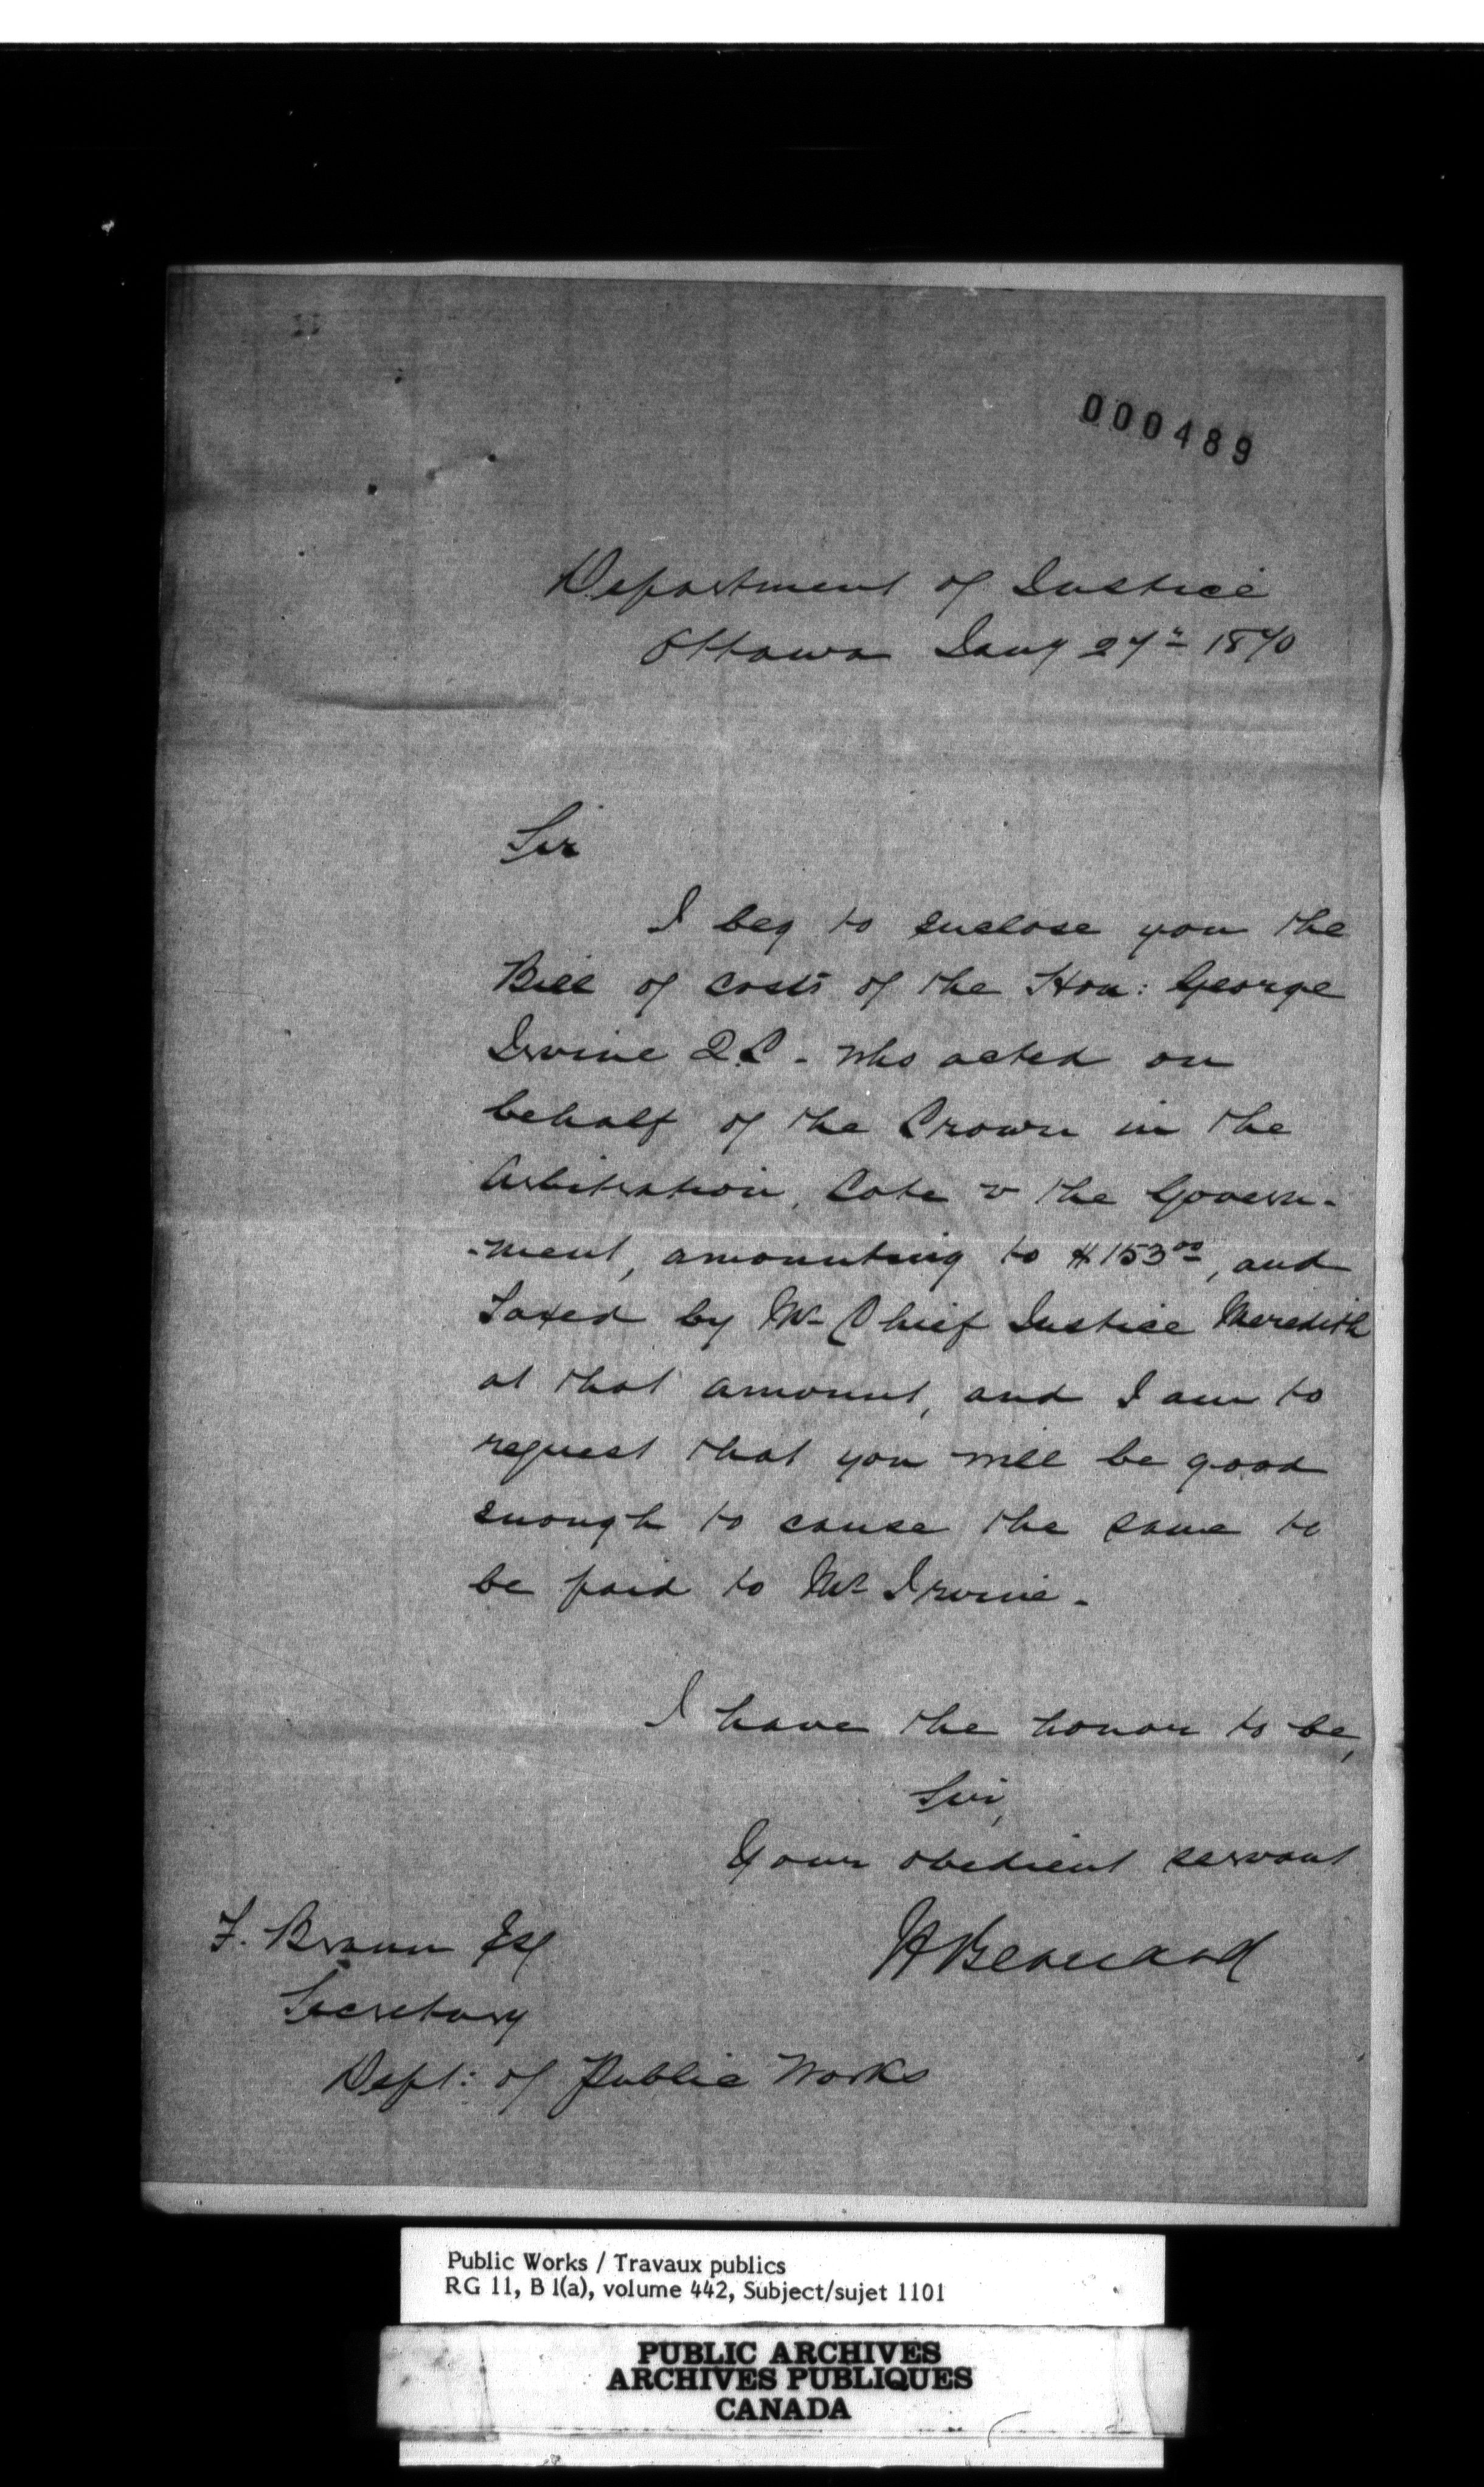 000489
Department of Justice
Ottawa Jany 27th 1870
Sir
I beg to enclose you the
Bill of costs of the Hon: George
Irvine Q.C. - who acted on
behalf of the Crown in the
Arbitration, Cote v the Govern-
-ment, amounting to $153.00, and
Taxed by Mr Chief Justice Meredith
at that amount, and I am to
request that you will be good
enough to cause the same to
be paid to Mr Irvine -
I have the honor to be,
Sir,
Your obedient servant
H Bernard
F. Braun Esq
Secretary
Dept: of Public Works
Public Works / Travaux publics
RG 11, B 1(a), volume 442, Subject/sujet 1101
PUBLIC ARCHIVES
ARCHIVES PUBLIQUES
CANADA